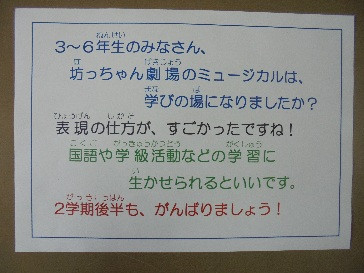 3～6年生のみなさん、
坊っちゃん劇場のミュージカルは、
学びの場になりましたか？
表現の仕方が、すごかったですね！
国語や学級活動などの学習に
生かせられるといいです。
2学期後半も、がんばりましょう！